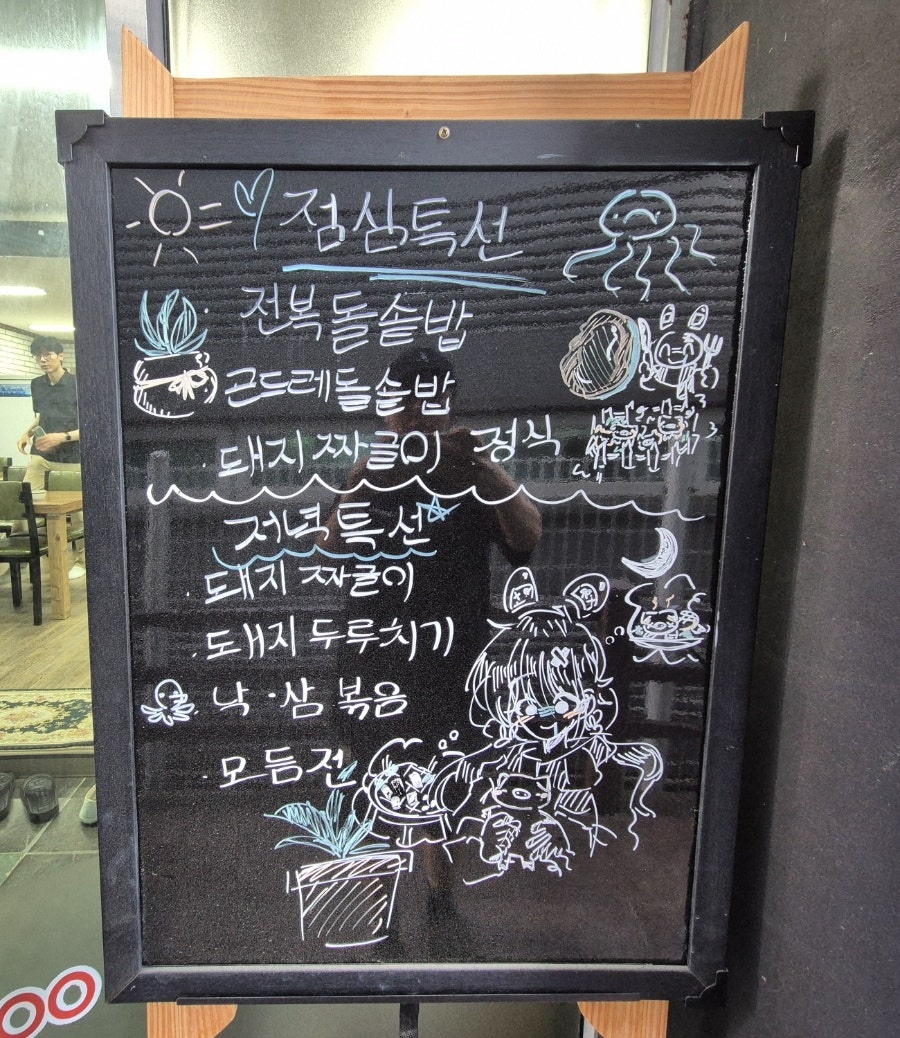 점심특선
전복돌솥밥
곤드레돌솥밥
돼지짜글이 정식
저녁특선
· 돼지짜글이
· 돼지두루치기
· 낙·삼볶음
· 모듬전